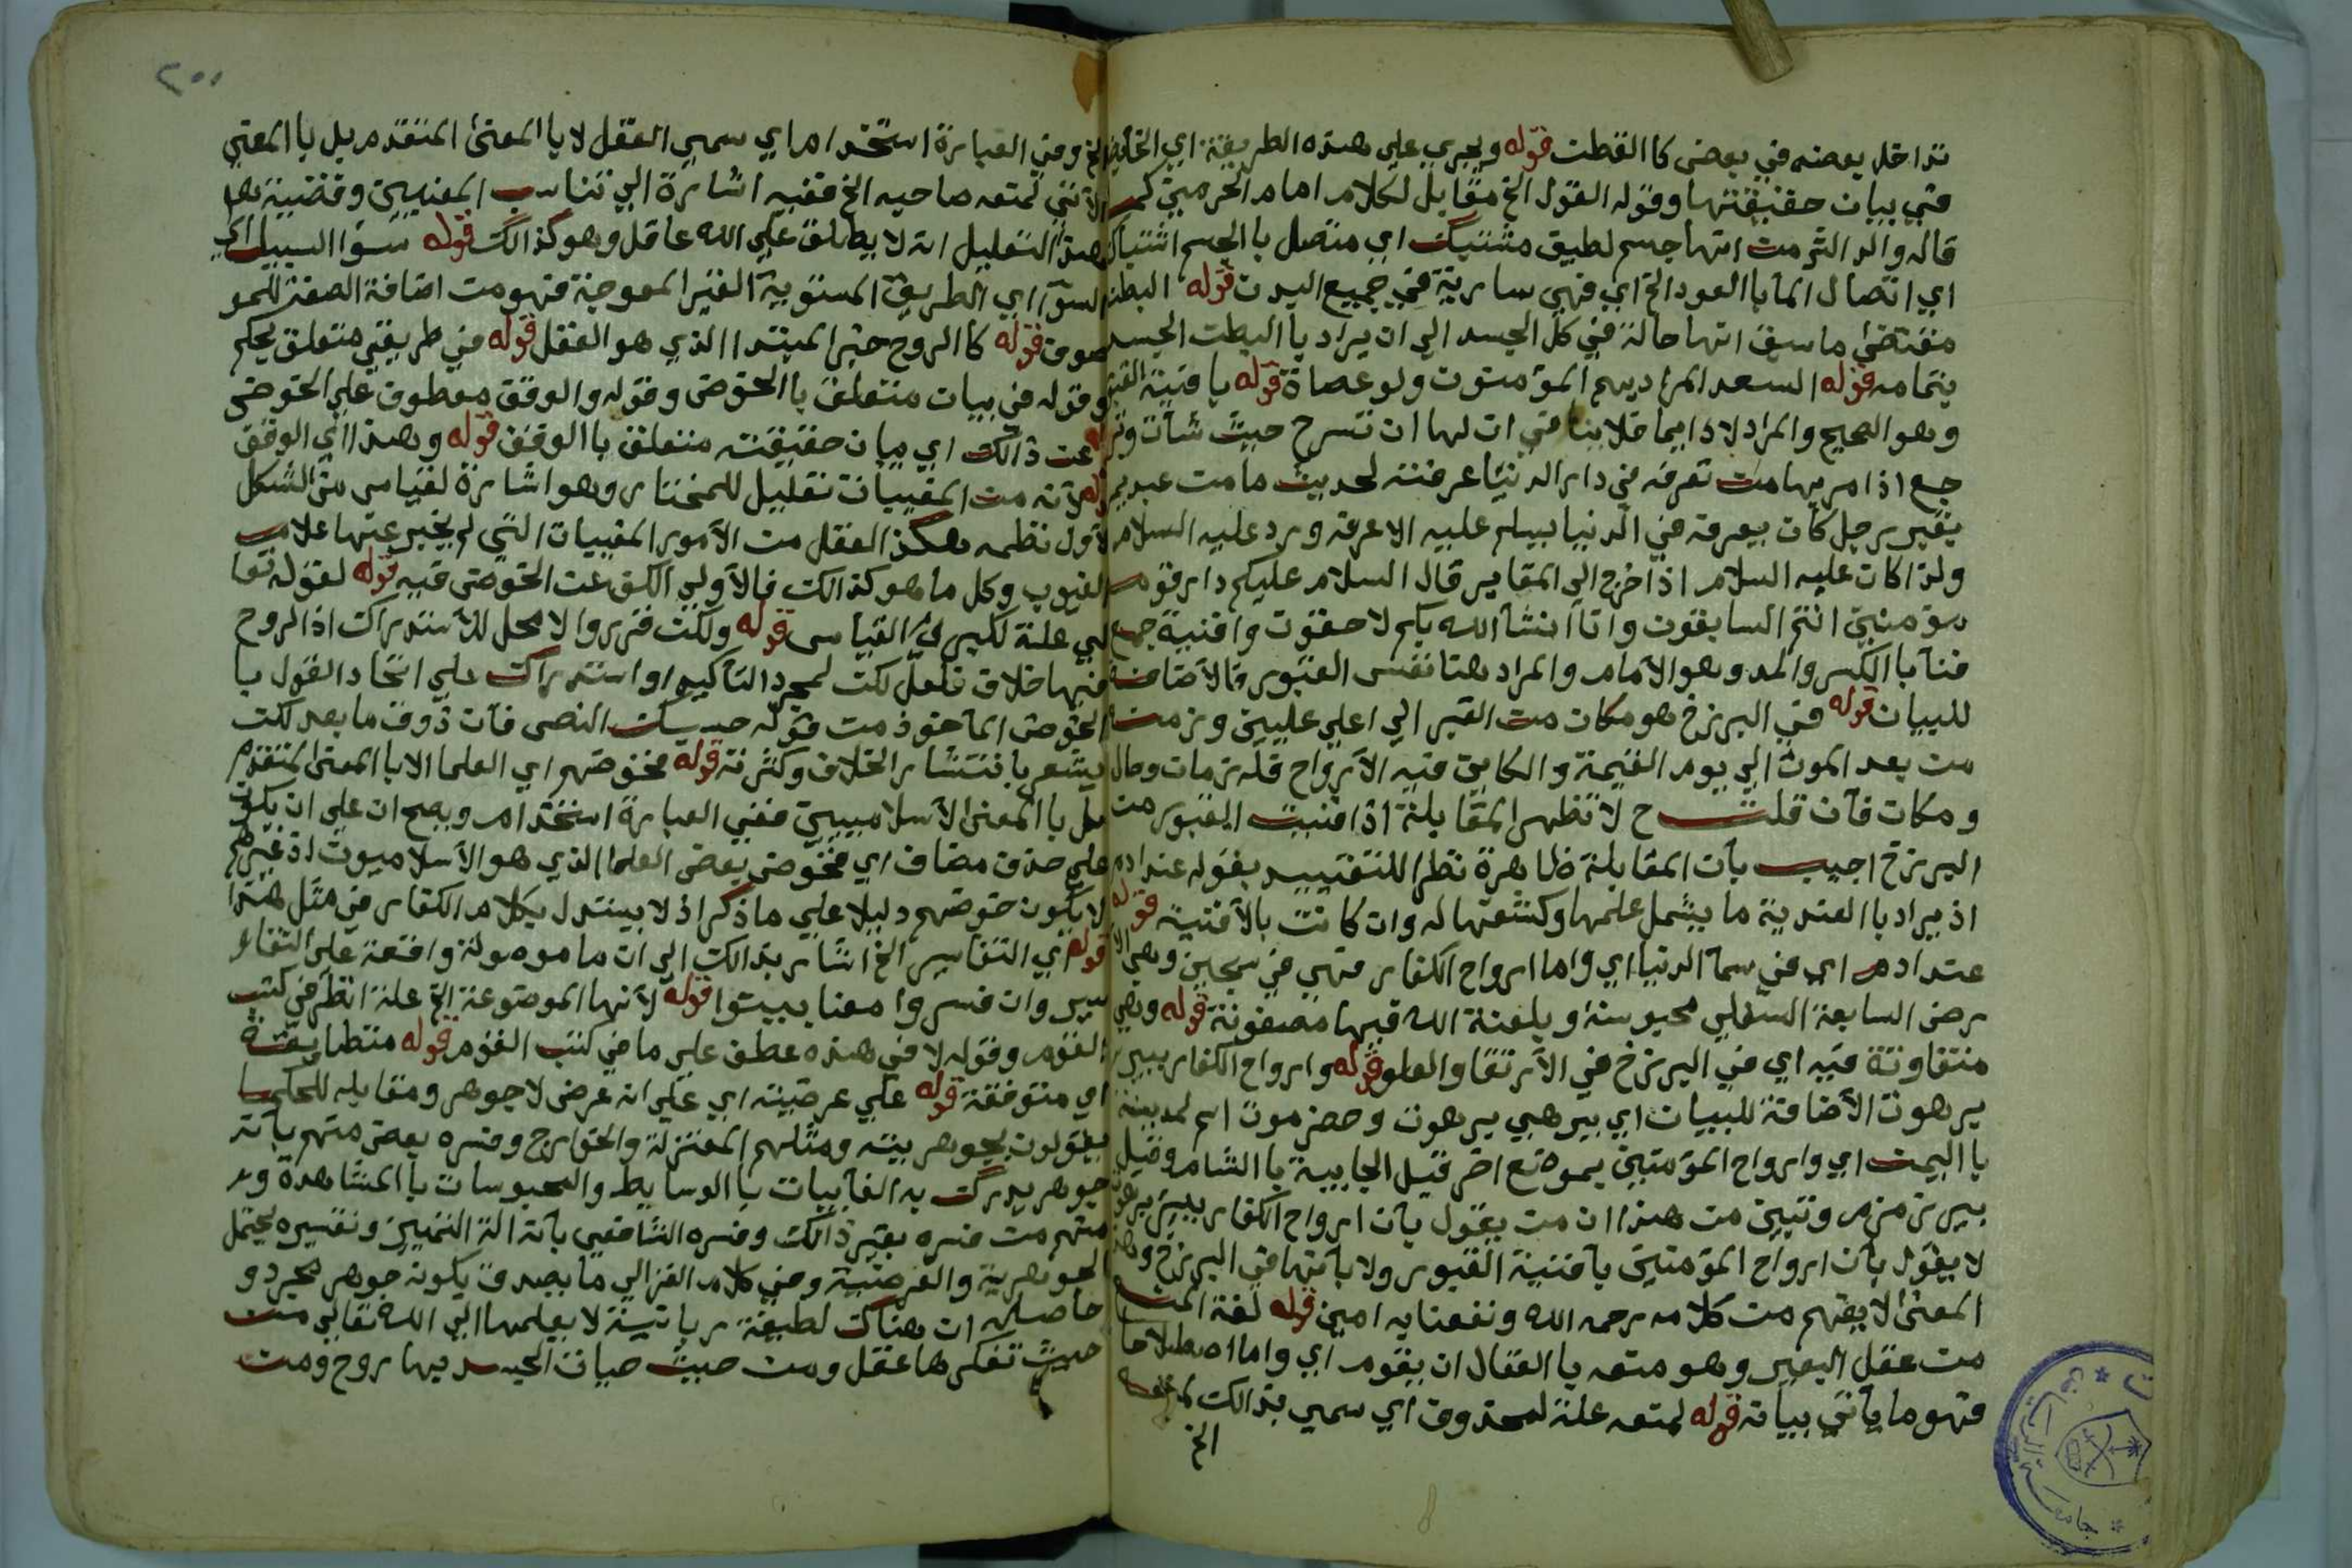 تداخل بعضه في بعض كا القطن قوله ويجري علي هذه الطريقة اي الخائض
في بيان حقيقتها وقوله القول الخ مقابل لكلام امام الحرمين كمـ
قاله والد الثر من انها جسم لطيق مشتبك اي متصل با الجسم اشتباك
اي اتصال المآ با العود الخ اي فهي سارية في جميع البدن قوله البطن
مقتضي ما سبق انها حالة في كل الجسد الي ان يراد با البطن الجسد
بتمامه قوله السعد المراد بهم المؤمنون ولو عصاة قوله بافنية القبور
وهو الصحيح والمراد لا دايما فلا ينافي ان لها ان تسرح حيث شآت
جع اذا مر بها من تعرفه في دار الدنيا عرفته لحديث ما من عبد يمر
بقبر رجل كان يعرفه في الدنيا بسلم عليه الا عرفه ورد عليه السلام
ولذا كان عليه السلام اذا خرج الي المقابر قال السلام عليكم دار قوم
مؤمنين انتم السابقون وانا انشآ الله بكم لاحقون وافنية جمع
فنآ با الكسر والمد وهو الامام والمراد هنا نفس القبور فالاضافة
للبيان قوله في البرزخ هو مكان من القبر الي اعلي عليين وزمن
من بعد الموت الي يوم القيمة والكاين فيه الارواح فله زمان وحال
ومكان فآن قلت ح لا تظهر المقابلة اذ افنية القبور من
البرزخ اجيب بآن المقابلة ظاهرة نظرا للتقييد بقوله عند ادم
اذ يراد با العندية ما يشمل علمها وكشفها له وان كانت بالافنية قوله
عند ادم اي في سمآ الدنيا اي واما ارواح الكفار فهي في سجين وهي الا
رض السابعة السفلي محبوسة وبلعنة الله فيها مصفونة قوله وهي
متفاوتة فيه اي في البرزخ في الارتفا والعلو قوله وارواح الكفار ببير
برهوت الاضافة للبيان اي بير هي برهوت وحضرموت اسم لمدينة
با اليمن اي وارواح المؤمنين بموضع اخر قيل الجابية با الشام وقيل
بير زمزم وتبين من هذا ان من يقول بآن ارواح الكفار ببير برهوت
لا يقول بآن ارواح المؤمنين بآفنية القبور ولا بآنها في البرزخ وهذ
المعني لا يفهم من كلامه رحمه الله ونفعنا به امين قوله لغة المنـ
من عقل البعير وهو منعه با العقال ان يقوم اي واما اصطلاحا
فهو ما يآتي بيآنه قوله لمنعه علة لمحذوف اي سمي بذالك لمنعه
الخ
٢٥١
الخ وفي العبارة استخدام اي سمي العقل لا با المعني المتقدم بل با المعني
الآتي لمنعه صاحبه الخ ففيه اشارة الي تناسب المعنيين وقضية هـ
هذا التعليل انه لا يطلق علي الله عاقل وهو كذالك قوله سوا السبيل اي
السوا اي الطريق المستوية الغير المعوجة فهو من اضافة الصفة للمو
صوف قوله كا الروح خبر المبتدا الذي هو العقل قوله في طريقي متعلق بحكم
وقوله في بيان متعلق با الخوض وقوله والوقق معطوف علي الخوض
عن ذالك اي بيان حقيقته متعلق با الوقف قوله وهذا اي الوقف
لآنه من المغيبات تعليل للمختار وهو اشارة لقياس من الشكل
الآول نظمه هكذ العقل من الآمور المغيبات التي لم يخبر عنها علام
الغيوب وكل ما هو كذالك فالآولي الكف عن الخوض فيه قوله لقوله تعا
لي علة لكبري القياس قوله ولكن قرروا لا محل للآستدراك اذ الروح
فيها خلاف فلعل لكن لمجرد التآكيد او استدراك علي اتحاد القول با
الخوض المآخوذ من قوله حسبك النص فآن ذوق ما بعد لكن
يشعر با نتشار الخلاف وكثرته قوله مخوضهم اي العلما لا با المعني المتقدم
بل با المعني الآسلاميين ففي العبارة استخدام ويصح ان علي ان يكون
علي حذف مضاف اي مخوض بعض العلما الذي هو الآسلاميون اذ غيرهم
لا يكون خوضهم دليلا علي ما ذكر اذ لا يستدل بكلام الكفار في مثل هذا
قوله اي التفاسير الخ اشار بذالك الي ان ما موصولة واقعة علي التفاـ
سير وان فسروا معنا ببينوا قوله لآنها الموضوعة الخ علة انظر في كتب
القوم وقوله لا في هذه عطف علي ما في كتب القوم قوله متطابقة
اي متوفقة قوله علي عرضيته اي علي انه عرض لا جوهر ومقابله للحكما
يقولون بجوهريته ومثلهم المعتزلة والخوارج وفسره بعض منهم بآنه
جوهر يدرك به الغآيبات با الوسايط والمحبوسات با المشاهدة و
منهم من فسره بغير ذالك وفسره الشافعي بآنه الة التميين وتفسيره يحتمل
الجوهرية والعرضية وفي كلام الغزالي ما يصدق بكونه جوهر مجرد و
حاصله ان هناك لطيفة ربانية لا يعلمها الي الله تعالي من
حيث تفكرها عقل ومن حيث حيات الجسد بها روح ومن